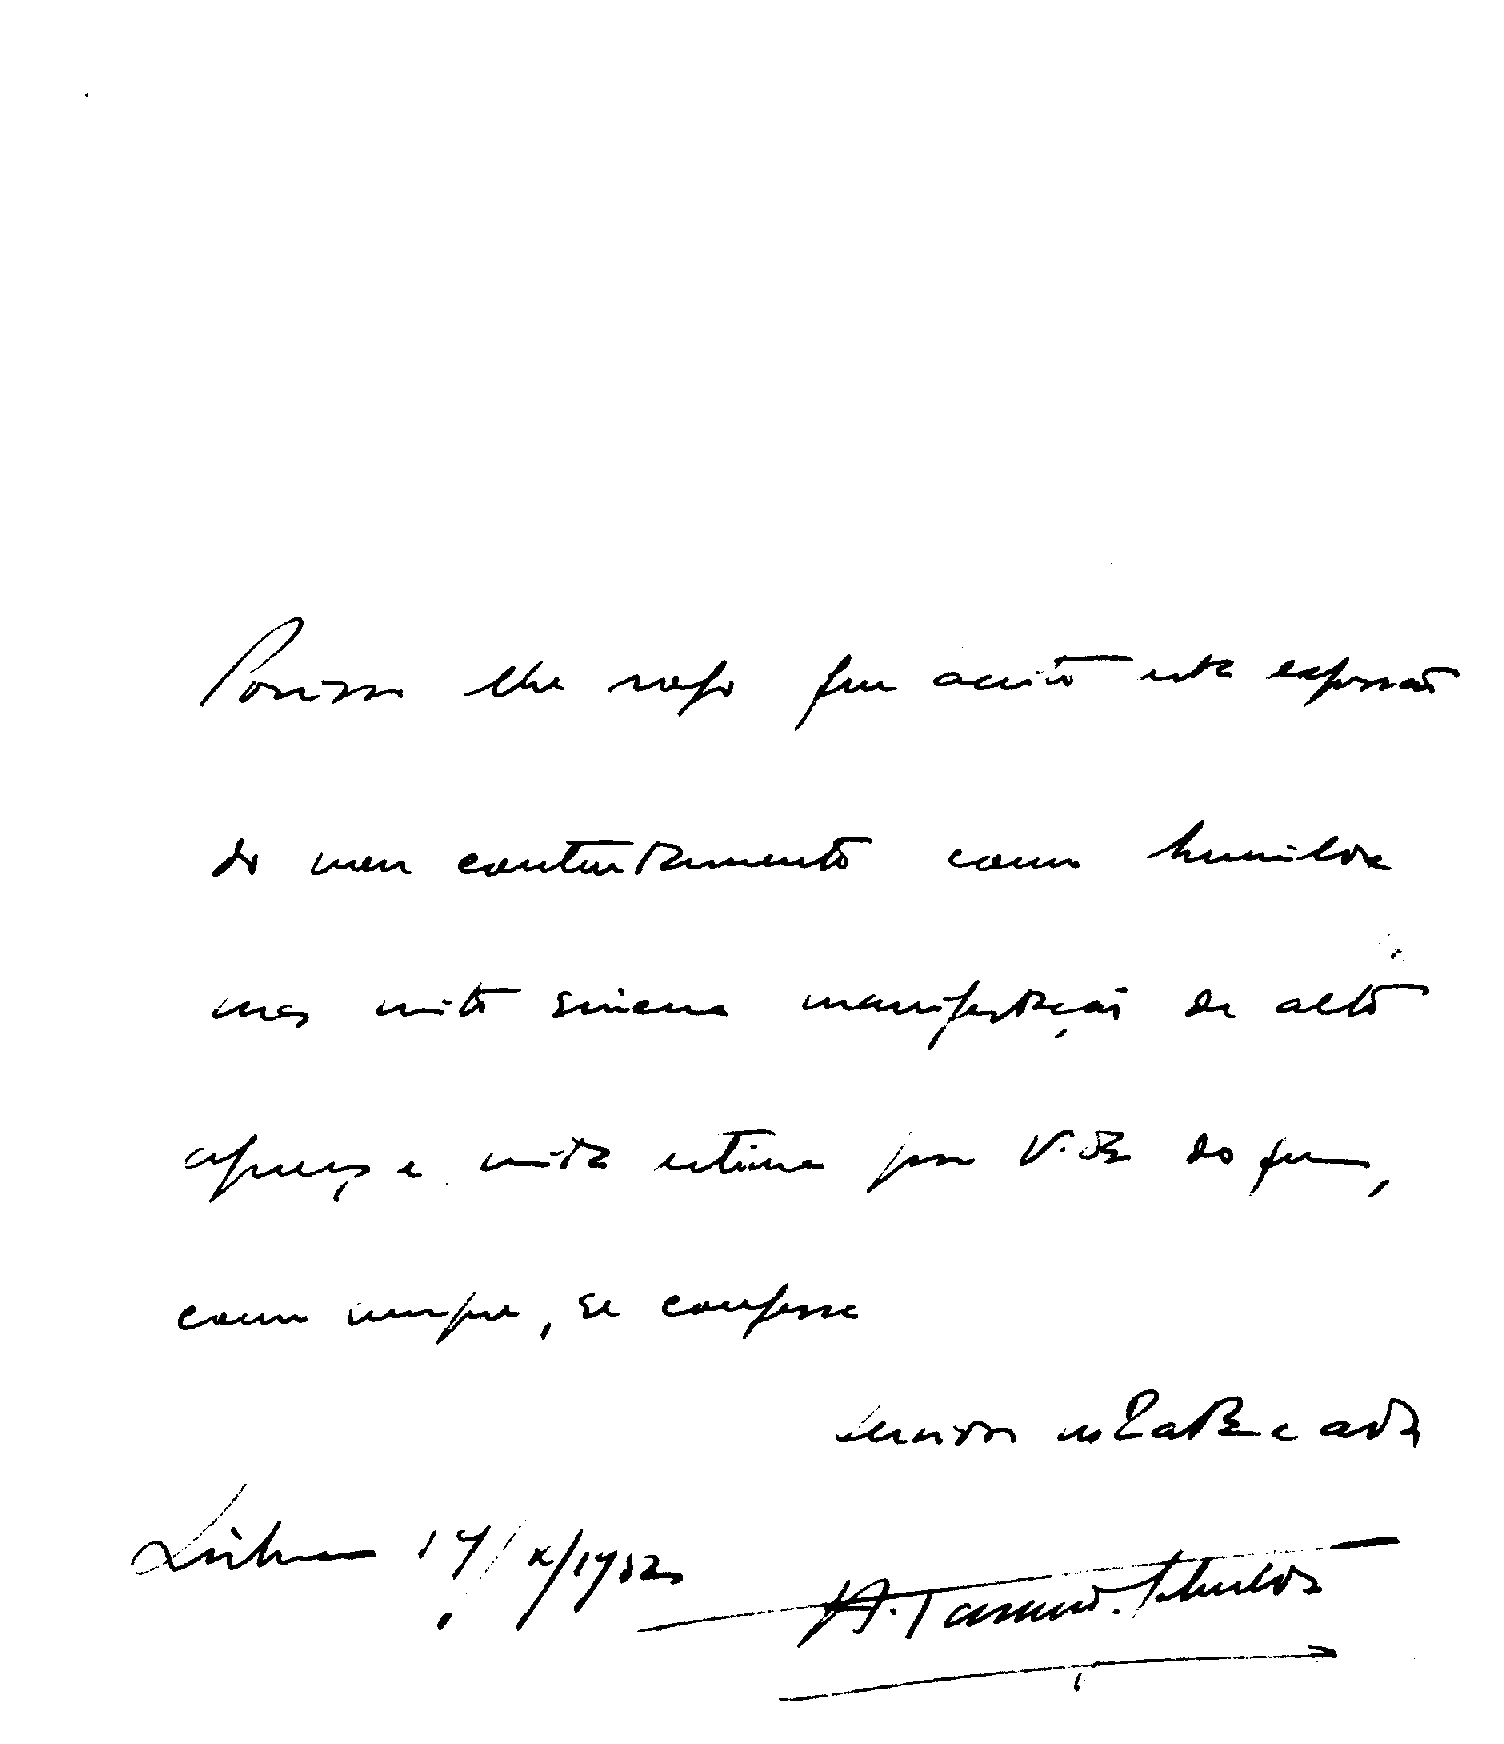 Porisso lhe rogo que aceite esta expressão
do meu contentamento como humilde
mas muito sincera manifestação de alto
apreço e muita estima por V. Exa do que,
como sempre, se confessa
servidor
Lisboa 19/X/1932